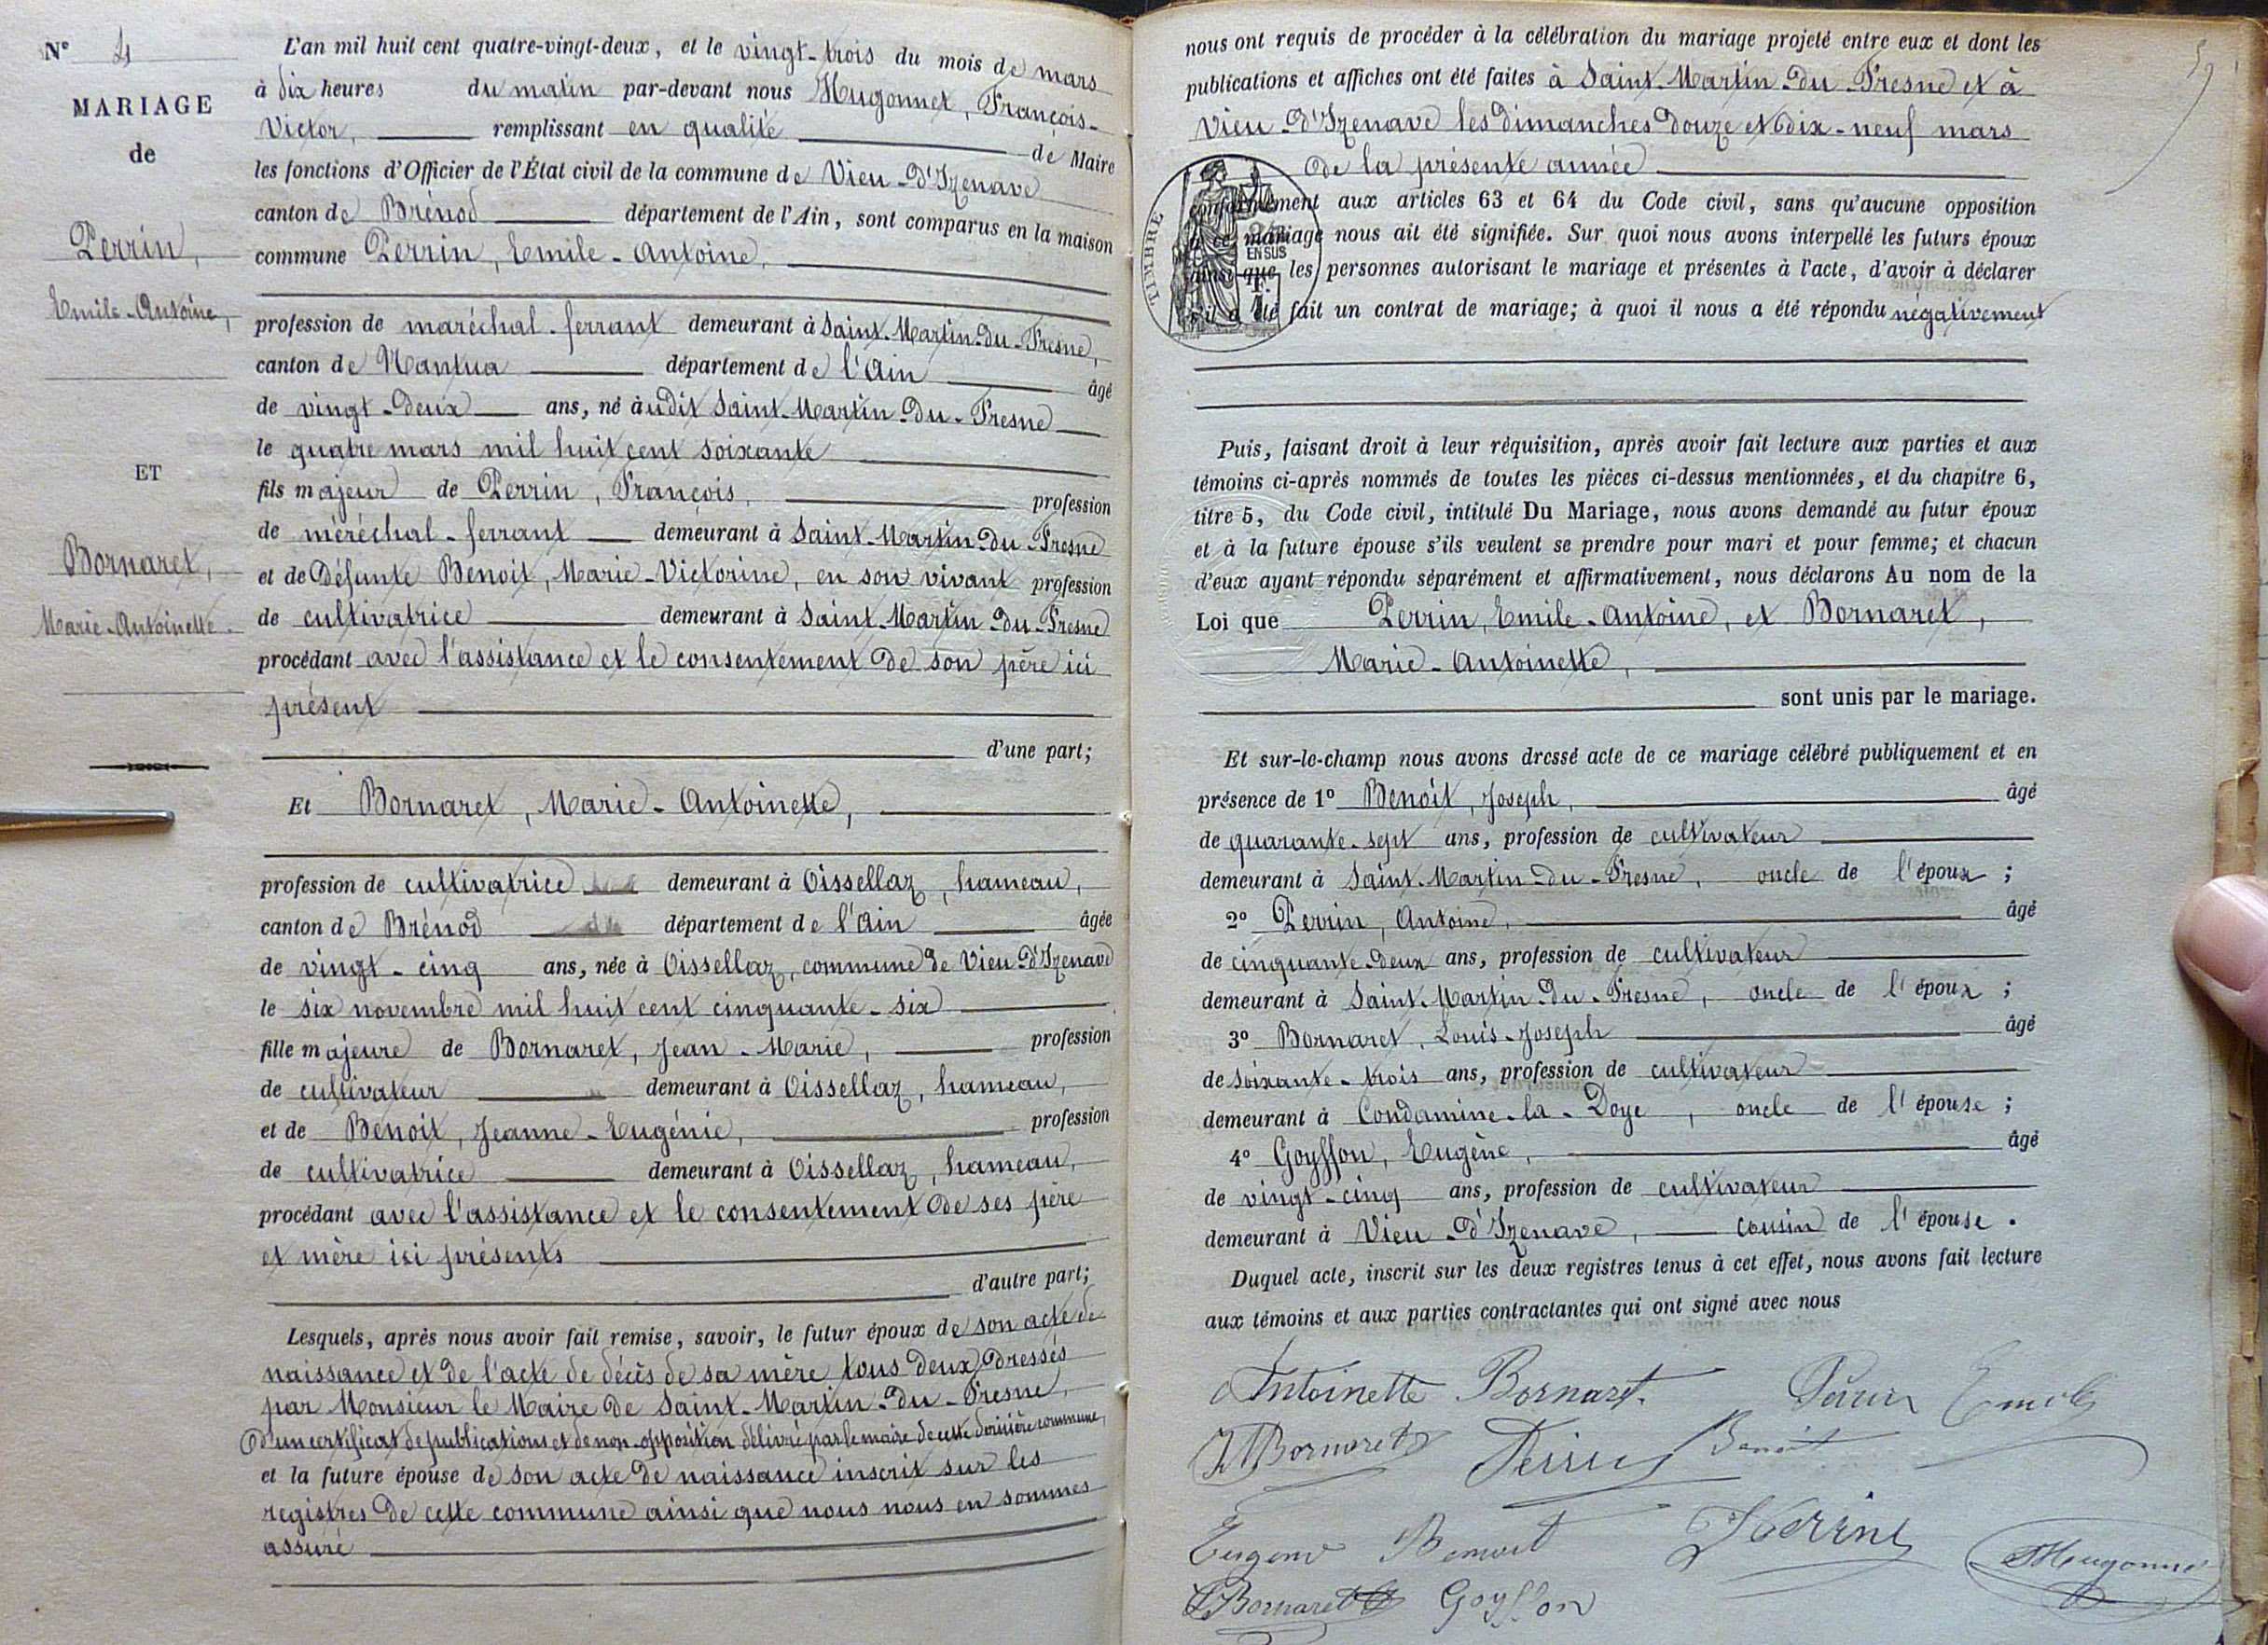 N° 4
MARIAGE
de
Perrin,
Emile-Antoine,
ET
Bornaret,
Marie-Antoinette.
L'an mil huit cent quatre-vingt-deux, et le vingt-trois du mois de mars
à dix heures du matin par-devant nous Hugonnet, François-
Victor, remplissant en qualité de Maire
les fonctions d'Officier de l'État civil de la commune de Vieu-d'Izenave
canton de Brénod département de l'Ain, sont comparus en la maison
commune Perrin, Emile-Antoine,
profession de maréchal-ferrant demeurant à Saint-Martin-du-Fresne,
canton de Nantua département de l'Ain âgé
de vingt-deux ans, né àudit Saint-Martin-du-Fresne
le quatre mars mil huit cent soixante
fils majeur de Perrin, François, profession
de méréchal-ferrant demeurant à Saint-Martin-du-Fresne
et de défunte Benoit, Marie-Victorine, en son vivant profession
de cultivatrice demeurant à Saint-Martin-du-Fresne
procédant avec l'assistance et le consentement de son père ici
présent
d'une part;
Et Bornaret, Marie-Antoinette,
profession de cultivatrice demeurant à Oissellaz, hameau,
canton de Brénod département de l'Ain âgée
de vingt-cinq ans, née à Oissellaz, commune de Vieu-d'Izenave
le six novembre mil huit cent cinquante-six
fille majeure de Bornaret, Jean-Marie, profession
de cultivateur demeurant à Oissellaz, hameau,
et de Benoit, Jeanne-Eugénie, profession
de cultivatrice demeurant à Oissellaz, hameau,
procédant avec l'assistance et le consentement de ses père
et mère ici présents
d'autre part;
Lesquels, après nous avoir fait remise, savoir, le futur époux de son acte de
naissance et de l'acte de décès de sa mère tous deux dressés
par Monsieur le Maire de Saint-Martin-du-Fresne,
d'un certificat de publications et de non-opposition délivré par le maire de cette dernière commune,
et la future épouse de son acte de naissance inscrit sur les
registres de cette commune ainsi que nous nous en sommes
assuré
nous ont requis de procéder à la célébration du mariage projeté entre eux et dont les
publications et affiches ont été faites à Saint-Martin-du-Fresne et à
Vieu-d'Izenave les dimanches douze et dix-neuf mars
de la présente année
conformément aux articles 63 et 64 du Code civil, sans qu'aucune opposition
à ce mariage nous ait été signifiée. Sur quoi nous avons interpellé les futurs époux
ainsi que les personnes autorisant le mariage et présentes à l'acte, d'avoir à déclarer
s'il a été fait un contrat de mariage; à quoi il nous a été répondu négativement
TIMBRE
EN SUS
Puis, faisant droit à leur réquisition, après avoir fait lecture aux parties et aux
témoins ci-après nommés de toutes les pièces ci-dessus mentionnées, et du chapitre 6,
titre 5, du Code civil, intitulé Du Mariage, nous avons demandé au futur époux
et à la future épouse s'ils veulent se prendre pour mari et pour femme; et chacun
d'eux ayant répondu séparément et affirmativement, nous déclarons Au nom de la
Loi que Perrin, Emile-Antoine, et Bornaret,
Marie-Antoinette,
sont unis par le mariage.
Et sur-le-champ nous avons dressé acte de ce mariage célébré publiquement et en
présence de 1° Benoit, Joseph, âgé
de quarante-sept ans, profession de cultivateur
demeurant à Saint-Martin-du-Fresne, oncle de l'époux ;
2° Perrin, Antoine, âgé
de cinquante-deux ans, profession de cultivateur
demeurant à Saint-Martin-du-Fresne, oncle de l'époux ;
3° Bornaret, Louis-Joseph âgé
de soixante-trois ans, profession de cultivateur
demeurant à Condamine-la-Doye, oncle de l'épouse ;
4° Goyffon, Eugène, âgé
de vingt-cinq ans, profession de cultivateur
demeurant à Vieu-d'Izenave, cousin de l'épouse.
Duquel acte, inscrit sur les deux registres tenus à cet effet, nous avons fait lecture
aux témoins et aux parties contractantes qui ont signé avec nous
Antoinette Bornaret Emile
Bornaret Benoit
Benoit Perrin Hugonnet
Bornaret Goyffon